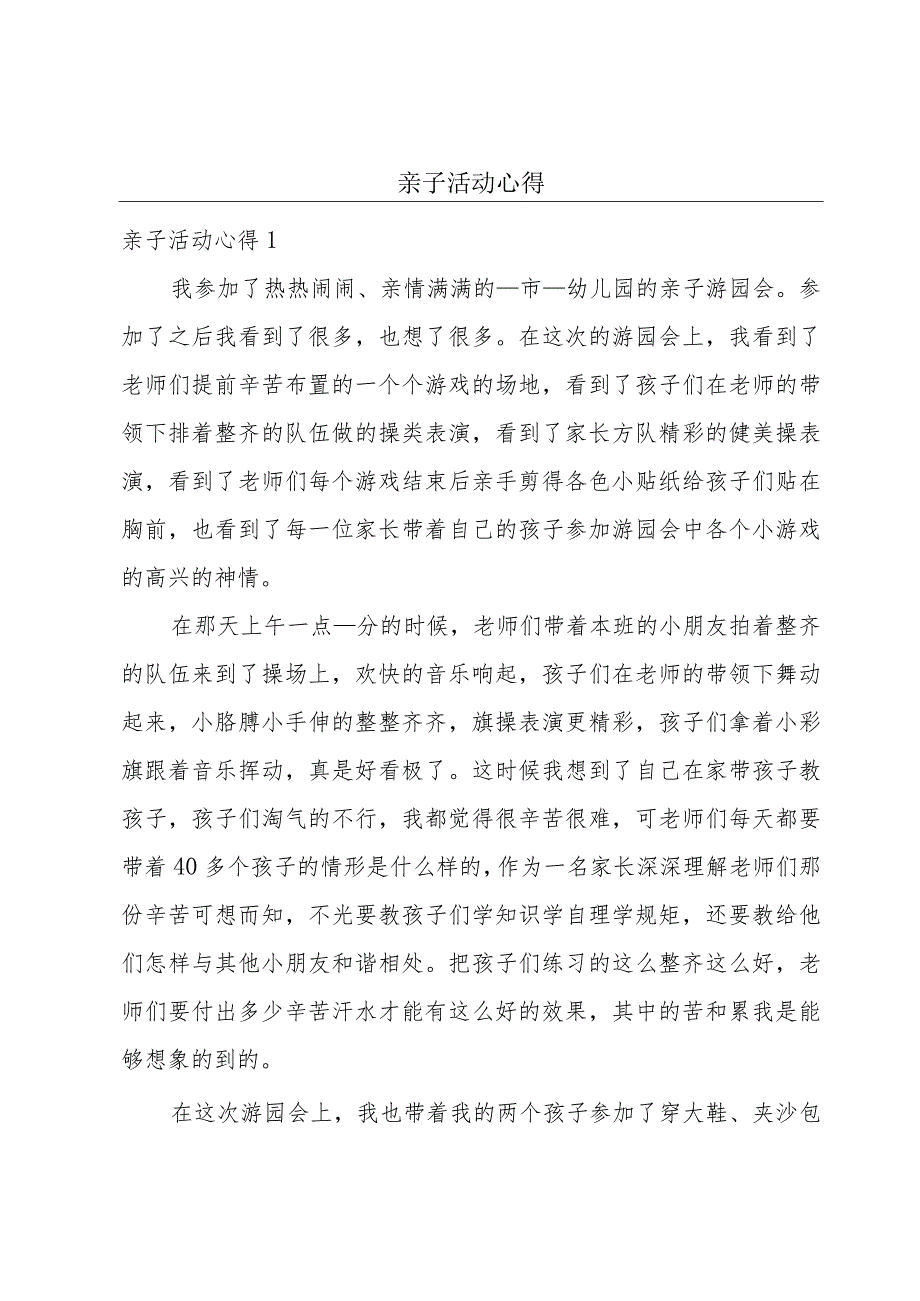 亲子活动心得
亲子活动心得1
我参加了热热闹闹、亲情满满的—市—幼儿园的亲子游园会。参
加了之后我看到了很多，也想了很多。在这次的游园会上，我看到了
老师们提前辛苦布置的一个个游戏的场地，看到了孩子们在老师的带
领下排着整齐的队伍做的操类表演，看到了家长方队精彩的健美操表
演，看到了老师们每个游戏结束后亲手剪得各色小贴纸给孩子们贴在
胸前，也看到了每一位家长带着自己的孩子参加游园会中各个小游戏
的高兴的神情。
在那天上午一点—分的时候，老师们带着本班的小朋友拍着整齐
的队伍来到了操场上，欢快的音乐响起，孩子们在老师的带领下舞动
起来，小胳膊小手伸的整整齐齐，旗操表演更精彩，孩子们拿着小彩
旗跟着音乐挥动，真是好看极了。这时候我想到了自己在家带孩子教
孩子，孩子们淘气的不行，我都觉得很辛苦很难，可老师们每天都要
带着40多个孩子的情形是什么样的，作为一名家长深深理解老师们那
份辛苦可想而知，不光要教孩子们学知识学自理学规矩，还要教给他
们怎样与其他小朋友和谐相处。把孩子们练习的这么整齐这么好，老
师们要付出多少辛苦汗水才能有这么好的效果，其中的苦和累我是能
够想象的到的。
在这次游园会上，我也带着我的两个孩子参加了穿大鞋、夹沙包